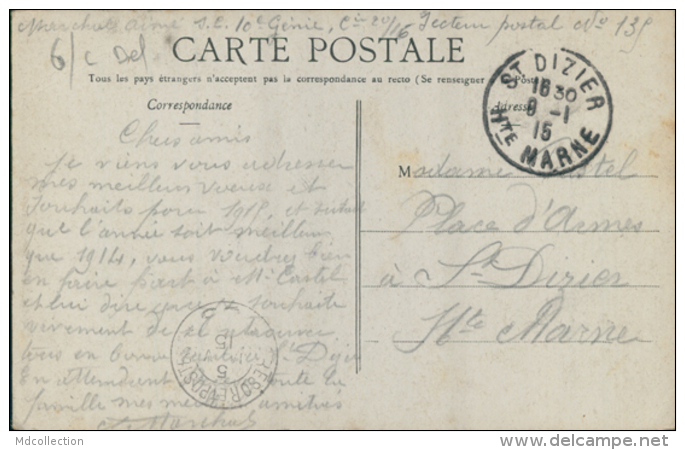 Marchal Aimé S.E. 10e Génie, Cie 20/16 Secteur postal No 139
6/c Del
CARTE POSTALE
Tous les pays étrangers n'acceptent pas la correspondance au recto (Se renseigner Poste
Correspondance
Adresse
ST DIZIER
18 30
8 -1
15
Hte MARNE
Chers amis
Je viens vous adresser
mes meilleurs voeux et
souhaits pour 1915, et surtout
que l'année soit meilleure
que 1914, vous voudrez bien
en faire part à Mr Castel
et lui dire que je souhaite
vivement de se retrouver
tous en bonne St Dizier
En attendant toute la
famille mes amitiés
A. Marchal
Madame Castel
Place d'Armes
à St Dizier
Hte Marne
5
15
Mdcollection
www.delcampe.net